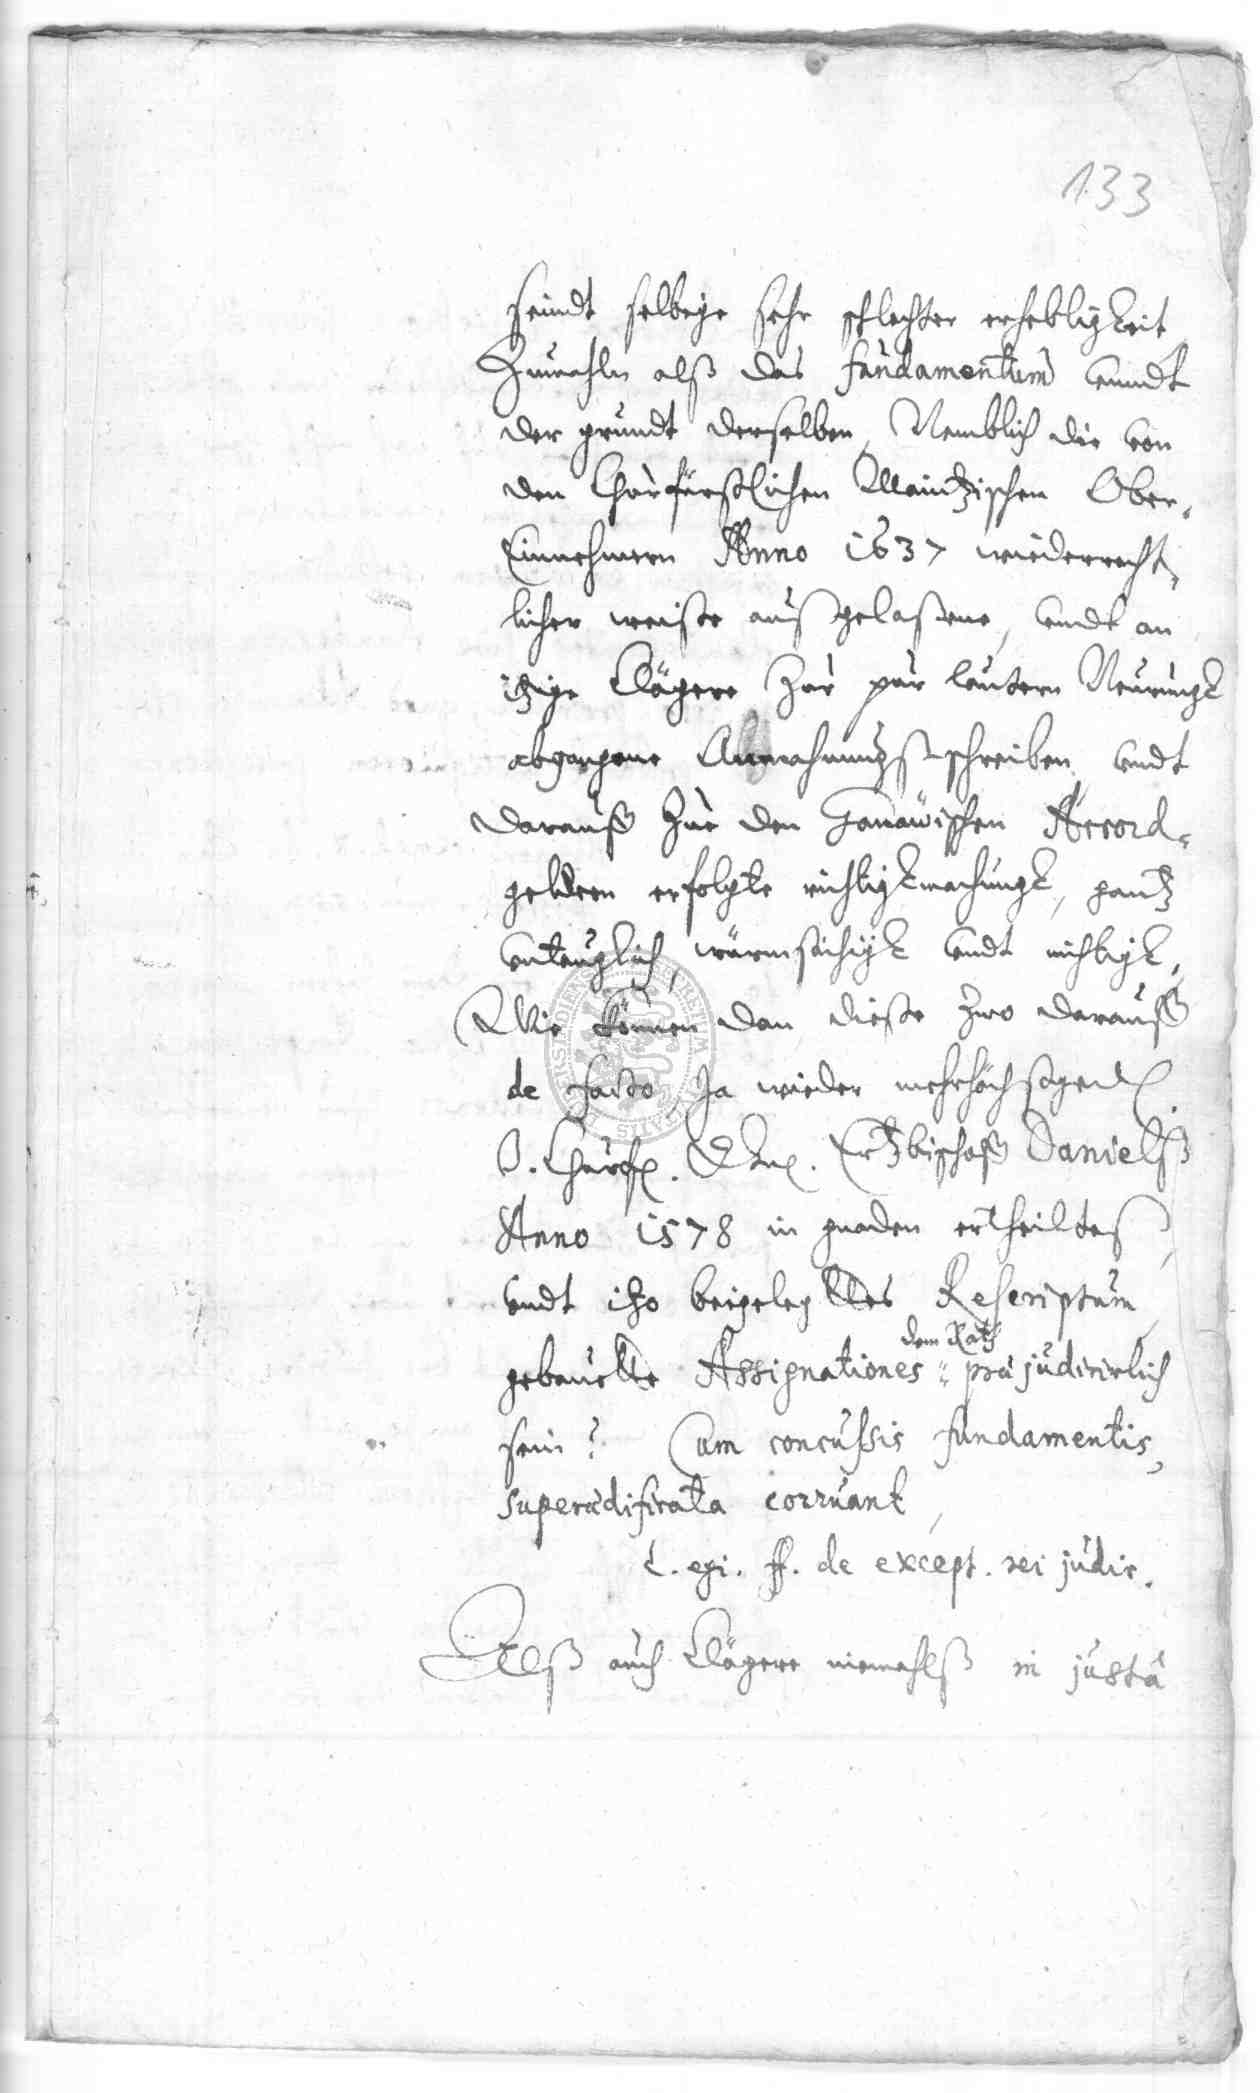 133
seindt selbige sehr schlechter erhebligkeit
Zumahln alß das fundamentum vnndt
der grundt derselben, Nemblich die von
den Churfürstlichen Maintzischen Ober-
Einnehmern Anno 1637 wiederrecht-
licher weiße außgelaßene, vndt an
itzige Clägere zur pur lautern Neurungk
abgangene Anmahnungßschreiben vndt
darauß zue den Hanawischen Accord-
geldern erfolgte richtigkmachungk, gantz
vntauglich, wurmstichigk vndt nichtigk,
Wie können dan dieße zwo darauff
de facto ja wieder mehrhöchstged.
S. Churfl. Gn. Ertzbischoff Danielß
Anno 1578 in gnaden ertheiltes,
vndt itzo beigelegttes Rescriptum
gebauette Assignationes dem Rath præjudicirlich
sein? Cum concussis fundamentis,
superædificata corruant,
L. egi. ff. de except. rei judic.
Alß auch Clägere niemahlß in justa